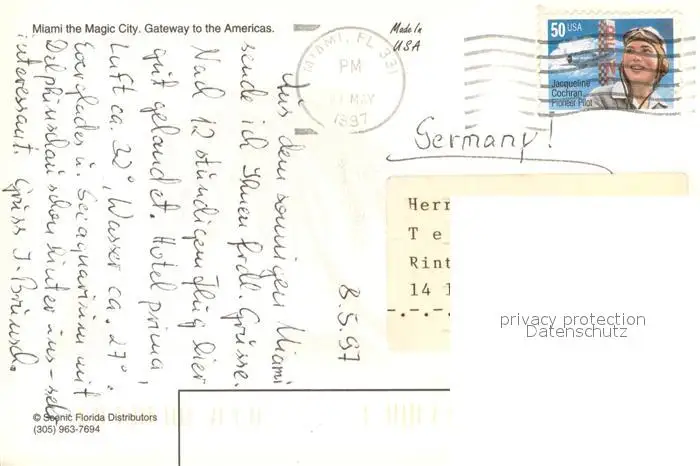 Miami the Magic City. Gateway to the Americas.
Made In
USA
MIAMI, FL 331
PM
MAY
1997
50 USA
Jacqueline
Cochran
Pioneer Pilot
Germany!
Herr
Te
Rint
14
-.-.-.
8.5.97
Aus dem sonnigen Miami
sende ich Ihnen frdl. Grüsse.
Nach 12 stündigem Flug hier
gut gelandet. Hotel prima,
Luft ca. 32°, Wasser ca. 27°.
Everglades u. Seaquarium mit
Delphinschau schon hinter uns - sehr
interessant. Gruss
© Scenic Florida Distributors
(305) 963-7694
privacy protection
Datenschutz